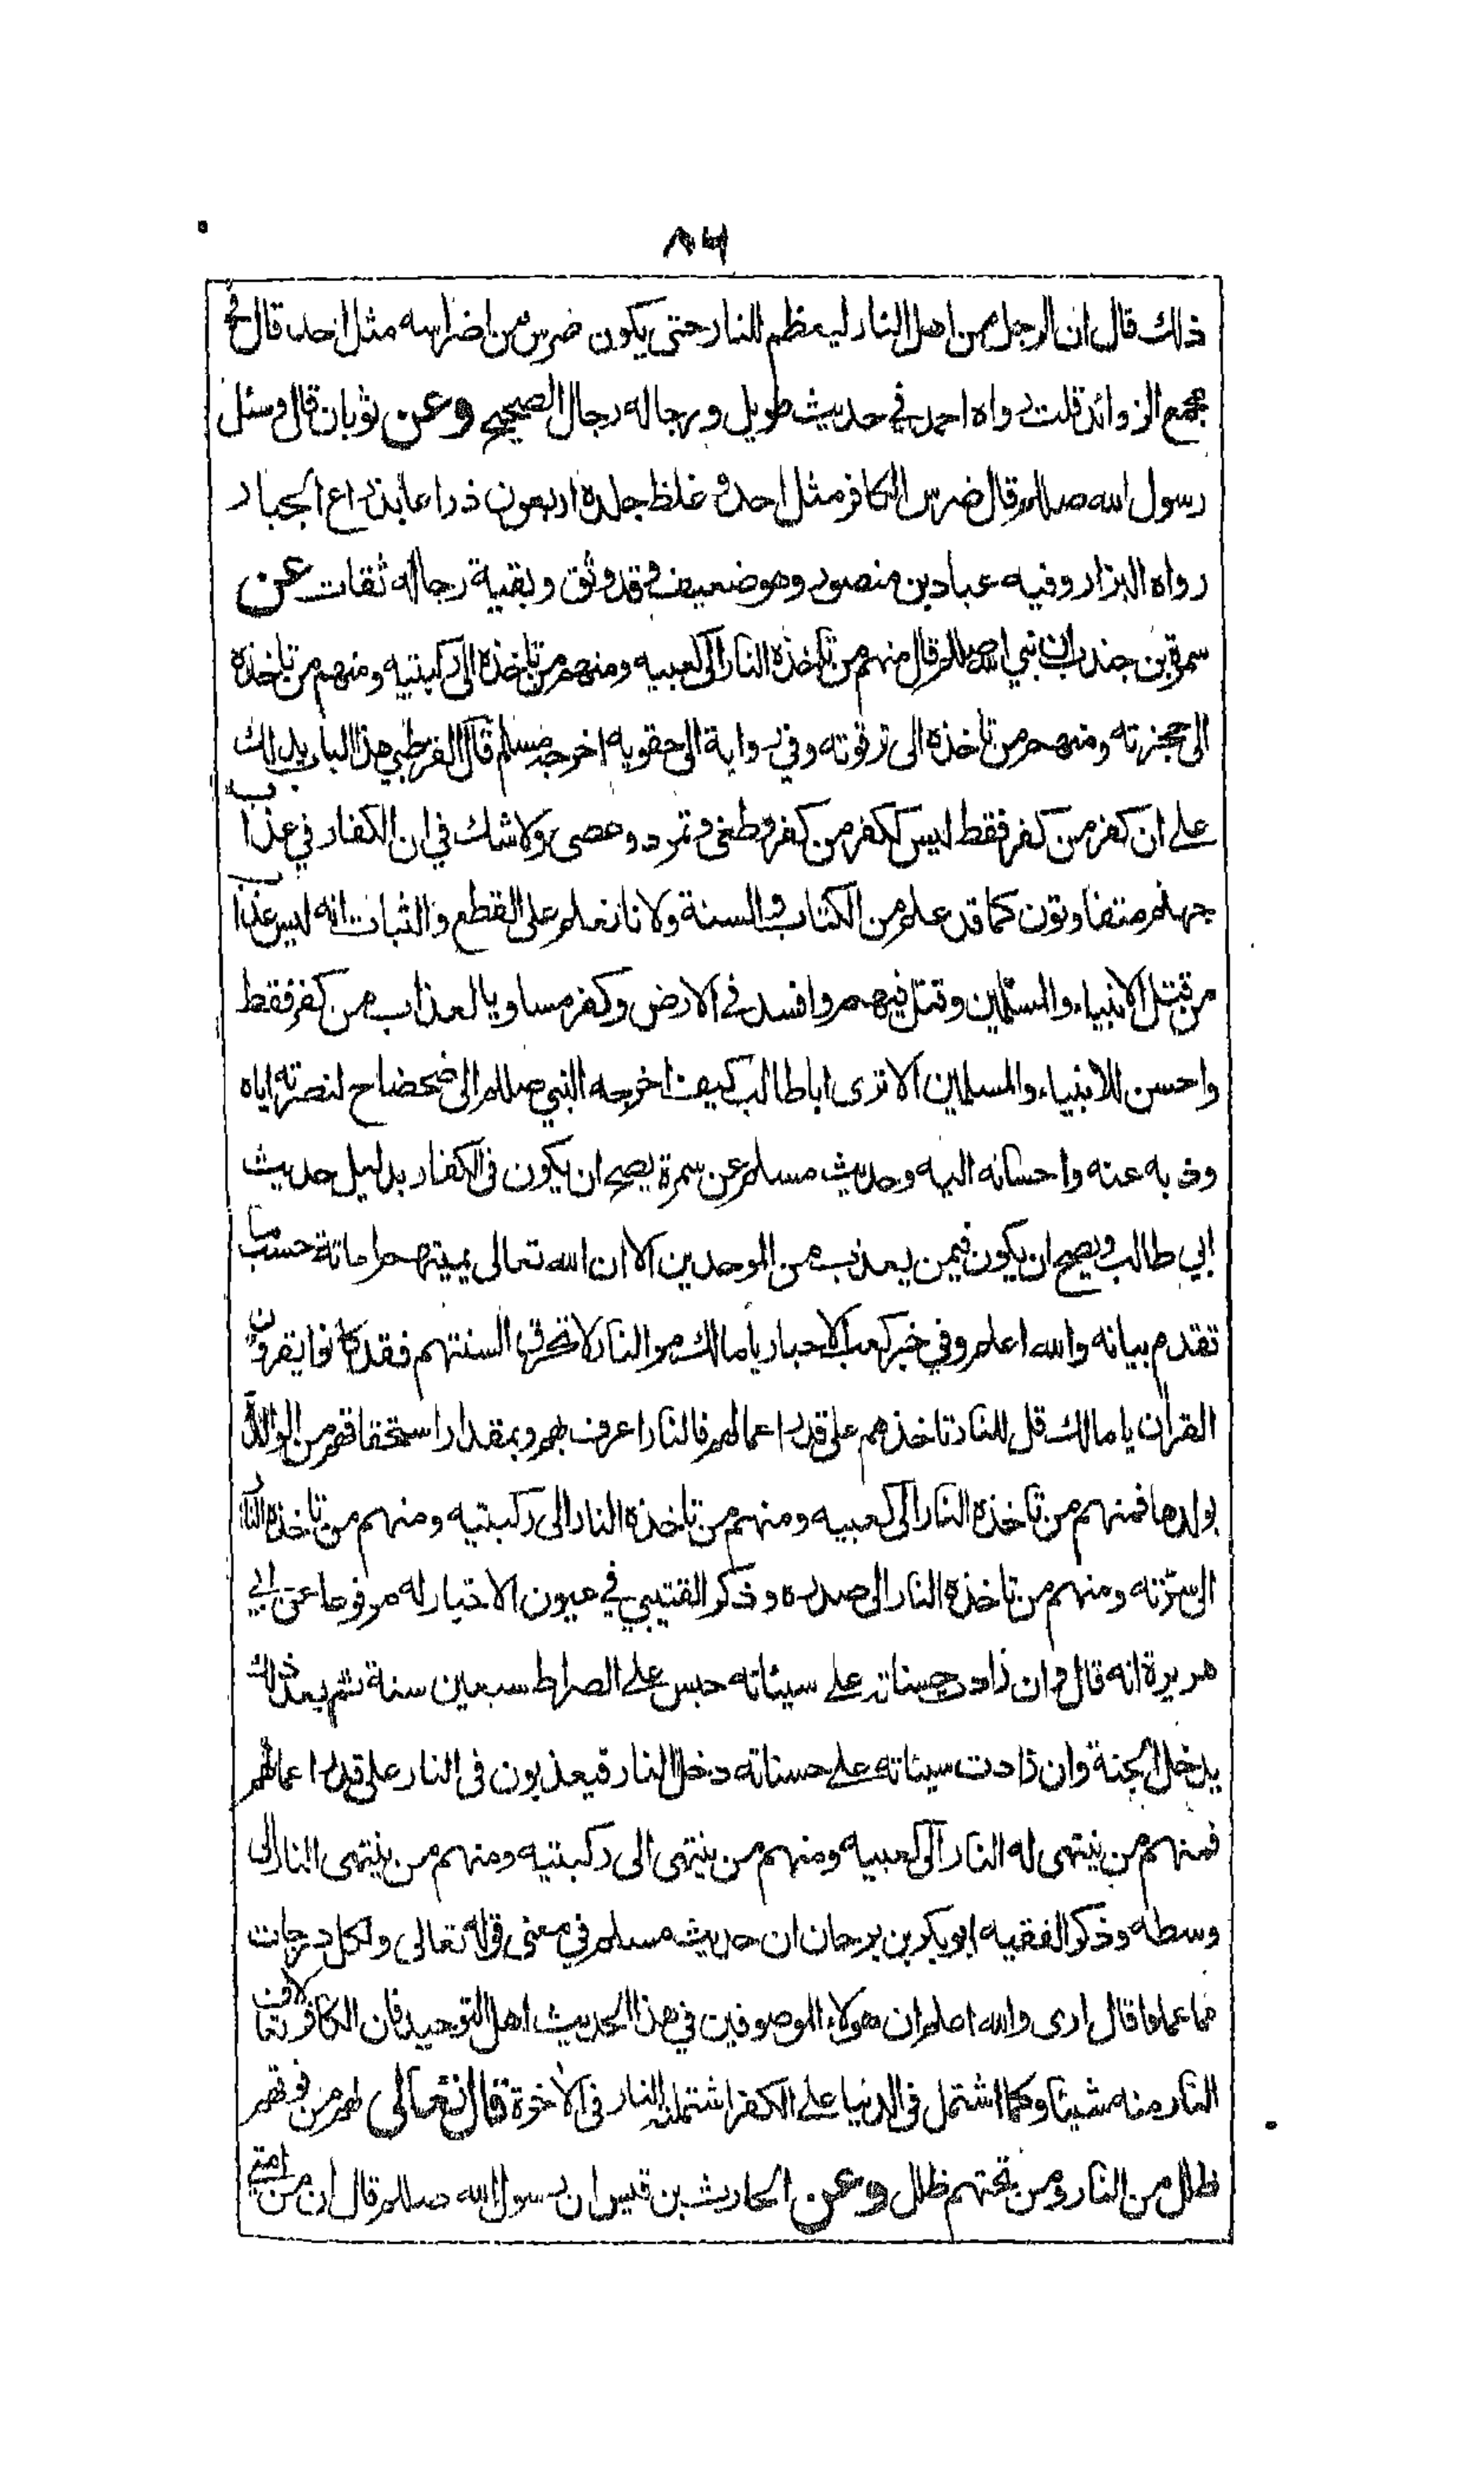 ٨٤
ذلك قال ان الرجل من اهل النار ليعظم للنار حتى يكون ضرس من اضراسه مثل احد قال في
مجمع الزوائد قلت رواه احمد في حديث طويل ورجاله رجال الصحيح وعن ثوبان قال وسئل
رسول الله صللم قال ضرس الكافر مثل احد وغلظ جلده اربعون ذراعا بذراع الجبار
رواه البزار وفيه عباد بن منصور وهو ضعيف وقد وثق وبقية رجاله ثقات عن
سمرة بن جندب ان نبي الله صللم قال منهم من تاخذه النار الى كعبيه ومنهم من تاخذه الى ركبتيه ومنهم من تاخذه
الى حجزته ومنهم من تاخذه الى ترقوته وفي رواية الى حقويه اخرجه مسلم قال القرطبي هذا الباب يدلك
على ان كفر من كفر فقط ليس ككفر من كفر وطغى وتمرد وعصى ولا شك في ان الكفار في عذاب
جهنم متفاوتون كما قد علم من الكتاب والسنة ولانا نعلم على القطع والثبات انه ليس عذاب
من قتل الانبياء والمسلمين وقتل فيهم وافسد في الارض وكفر مساويا لعذاب من كفر فقط
واحسن للانبياء والمسلمين الا ترى ابا طالب كيف اخرجه النبي صللم الى ضحضاح لنصرته اياه
وذبه عنه واحسانه اليه وحديث مسلم عن سمرة يصح ان يكون في الكفار بدليل حديث
ابي طالب ويصح ان يكون فيمن يعذب من الموحدين الا ان الله تعالى يميتهم اماتة حسب ما
تقدم بيانه والله اعلم وفي خبر كعب الاحبار يا مالك مر النار لا تحرق السنتهم فقد كانوا يقرون
القران يا مالك قل للنار تاخذهم على قدر اعمالهم فالنار اعرف بهم وبمقدار استحقاقهم من الوالدة
بولدها فمنهم من تاخذه النار الى كعبيه ومنهم من تاخذه النار الى ركبتيه ومنهم من تاخذه النار
الى سرته ومنهم من تاخذه النار الى صدره وذكر القتيبي في عيون الاخبار له مرفوعا عن ابي
هريرة انه قال وان زادت حسناته على سيئاته حبس على الصراط سبعين سنة ثم بعد ذلك
يدخل الجنة وان زادت سيئاته على حسناته دخل النار فيعذبون في النار على قدر اعمالهم
فمنهم من ينتهى له النار الى كعبيه ومنهم من ينتهى الى ركبتيه ومنهم من ينتهى النار الى
وسطه وذكر الفقيه ابو بكر بن برجان ان حديث مسلم في معنى قوله تعالى ولكل درجات
مما عملوا قال ارى والله اعلم ان هولاء الموصوفين في هذا الحديث اهل التوحيد فان الكافر لا تعاف
النار منه شيئا وكما اشتمل في الدنيا على الكفر اشتملته النار في الاخرة قال تعالى لهم من فوقهم
ظلل من النار ومن تحتهم ظلل وعن الحارث بن قيس ان رسول الله صللم قال ان من امتي